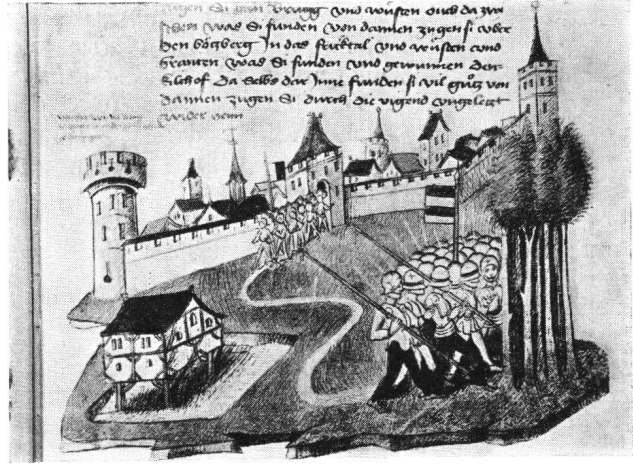 zugen Si gan Brugg vnd wůsten ouch da zwi
schen was Si funden von dannen zugen si vber
den Bötzberg In das fricktal vnd wůsten vnd
branten was Si funden vnd gewunnen den
kilchof da selbs dar Inne funden si vil gůtz von
dannen zugen Si durch die vigend vngeletzt
wider heim